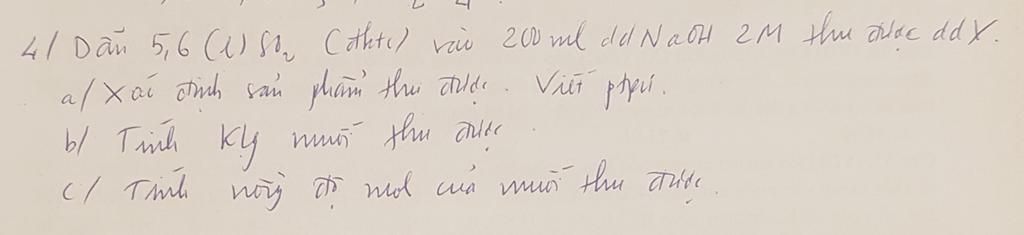 4/ Dẫn 5,6 (l) SO₂ (đktc) vào 200 ml dd NaOH 2M thu được ddX.
a/ Xác định sản phẩm thu được. Viết ptpứ.
b/ Tính Klg muối thu được.
c/ Tính nồng độ mol của muối thu được.